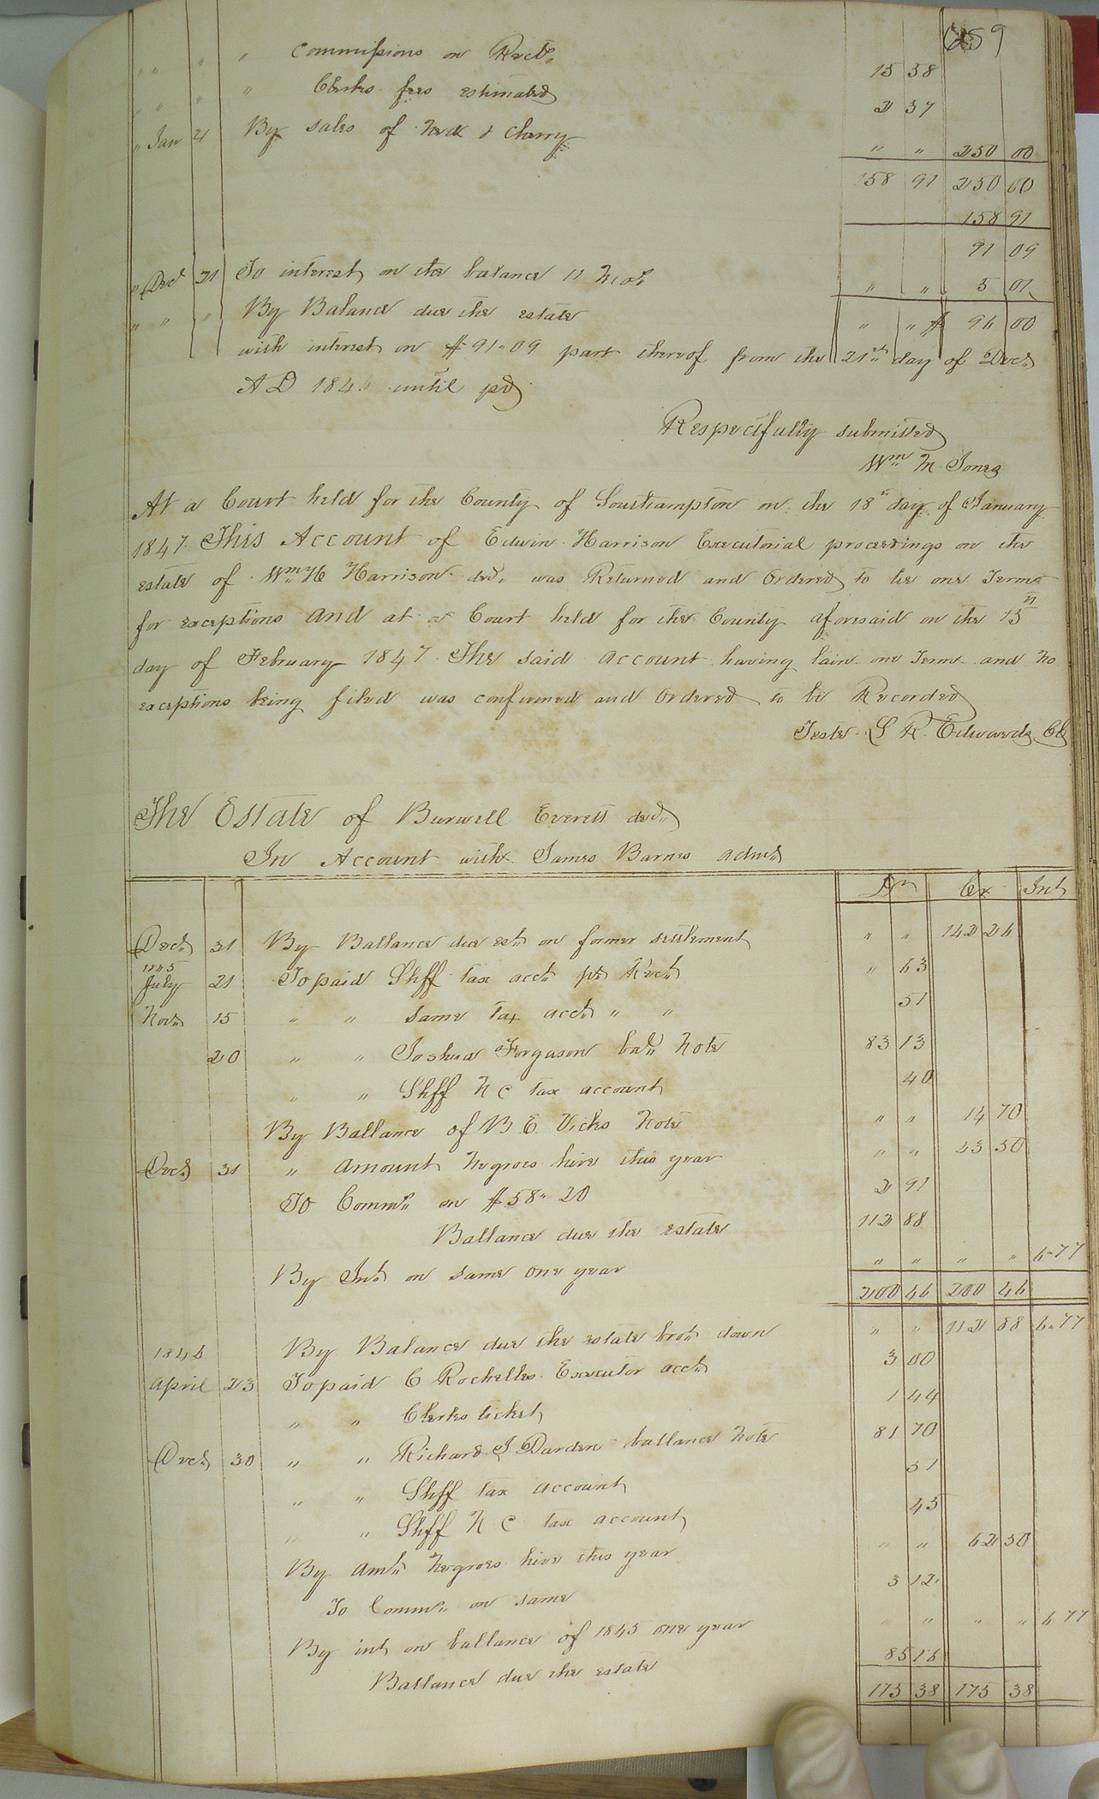 659
" " " " commissions on Rects 15 58
" " " " Clerks fees estimated 2 37
" Jan 21 By sales of & Cherry " " 250 00
158 91 250 00
158 91
91 09
" Decr 21 To interest on the balance 11 Mos " " 5 01
" " " By Balance due the estate " " $ 96 00
with interest on $91.09 part thereof from the 21st day of Decr
A D 1846 until pd
Respectfully submitted
Wm M Jones
At a Court held for the County of Southampton on the 18th day of January
1847 This Account of Edwin Harrison Executorial proceedings on the
estate of Wm H Harrison decd. was Returned and Ordered to lie one Term
for exceptions and at a Court held for the County aforesaid on the 15th
day of February 1847 The said account having lain one Term and no
exceptions being filed was confirmed and Ordered to be Recorded
Teste L R Edwards Clk
The Estate of Burwell Everett decd.
In Account with James Barnes admr
Dr Cr Int
Decr 31 By Ballance due est on former settlement " " 142 26
1845
July 21 To paid Shff tax acct pr Rect " 63
Novr 15 " " same tax acct " " 51
20 " " Joshua Ferguson bal Note 83 13
" " Shff N C tax account 40
By Ballance of B E Vicks Note " " 14 70
Decr 31 " amount Negroes hire this year " " 43 50
To Comms on $58.20 2 91
Ballance due the estate 112 88
By Int on same one year " " " " 6.77
200 46 200 46
1846 By Balance due the estate brot down " " 112 88 6.77
April 23 To paid C Rochelles Executor acct 3 00
" " Clerks ticket 1 44
Decr 30 " " Richard J Darden ballance Note 81 70
" " Shff tax account 51
" " Shff N C tax account 45
By Amt Negroes hire this year " " 62 50
To Comms on same 3 12
By int on ballance of 1845 one year " " " " 6 77
Ballance due the estate 85 16
175 38 175 38